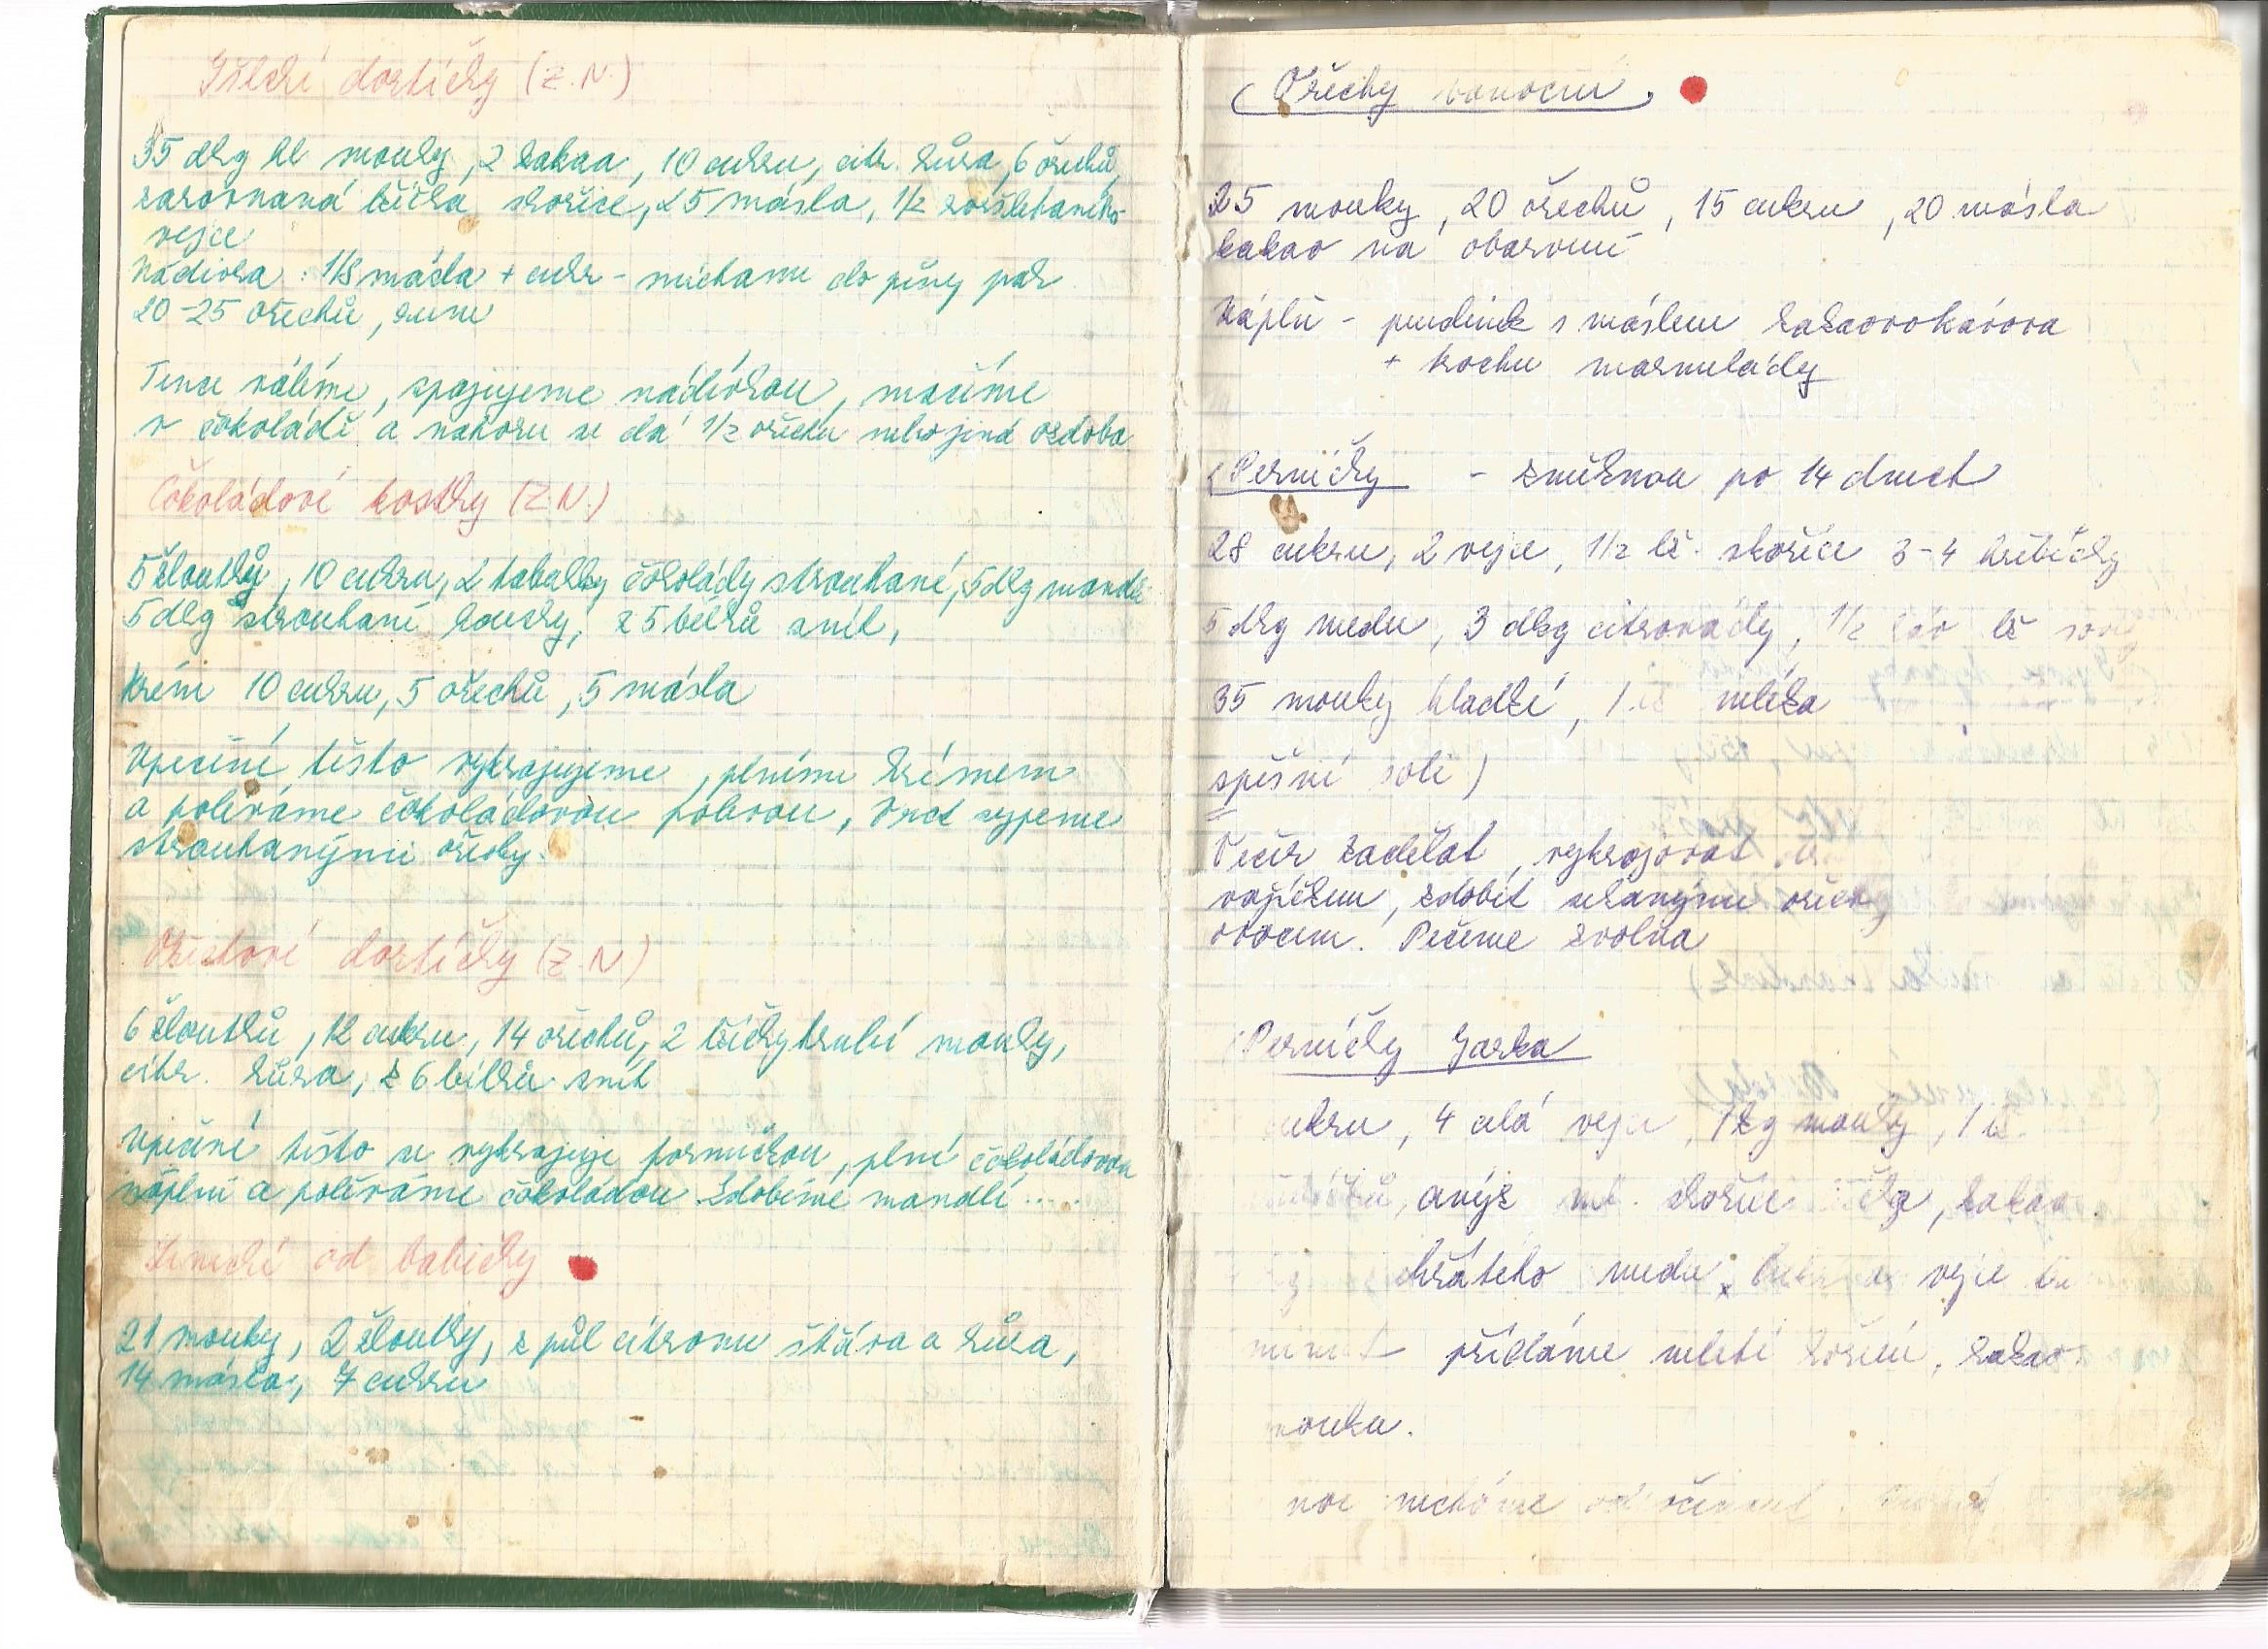 Išlské dortíčky (Z.N.)
35 dkg hl mouky, 2 kakaa, 10 cukru, citr. kůra, 6 ořechů,
zarovnaná lžička skořice, 25 másla, 1/2 rozšlehaného
vejce
Nádivka: 1/8 másla + cukr - mícháme do pěny pak
20-25 ořechů, rum
Tence válíme, spojujeme nádivkou, máčíme
v čokoládě a nahoru se dá 1/2 ořechu nebo jiná ozdoba
Čokoládové kostky (Z.N.)
5 žloutků, 10 cukru, 2 tabulky čokolády strouhané, 5 dkg mandlí
5 dkg strouhané housky, z 5 bílků sníh,
Krém 10 cukru, 5 ořechů, 5 másla
Upečené těsto vykrajujeme, plníme krémem
a poléváme čokoládovou polevou, vrch sypeme
strouhanými ořechy.
Ořechové dortíčky (Z.N)
6 žloutků, 12 cukru, 14 ořechů, 2 lžičky hrubé mouky,
citr. kůra, z 6 bílků sníh
Upečené těsto se vykrajuje formičkou, plní čokoládovou
náplní a poléváme čokoládou. Zdobíme mandlí ....
Linecké od babičky
21 mouky, 2 žloutky, z půl citronu šťáva a kůra,
14 másla, 7 cukru
(Ořechy vánoční
25 mouky, 20 ořechů, 15 cukru, 20 másla
kakao na obarvení
Náplň - pudink s máslem kakaovokávová
+ trochu marmelády
(Perníčky - změknou po 14 dnech
28 cukru, 2 vejce, 1/2 lž. skořice 3-4 hřebíčky
5 dkg medu, 3 dkg citronády, 1/2 káv lž sody
35 mouky hladké, 1 lž mléka
spěšné soli)
Večer zadělat, vykrajovat
vajíčkem, zdobit sekanými ořechy
ovocem. Pečeme zvolna
Perníčky Jarka
cukru, 4 celá vejce, 1 kg mouky, 1 lž.
anýz ml. skořice kakao
hřátého medu. vejce
minut přidáme mleté koření, kakao
mouku.
noc necháme odpočinout.